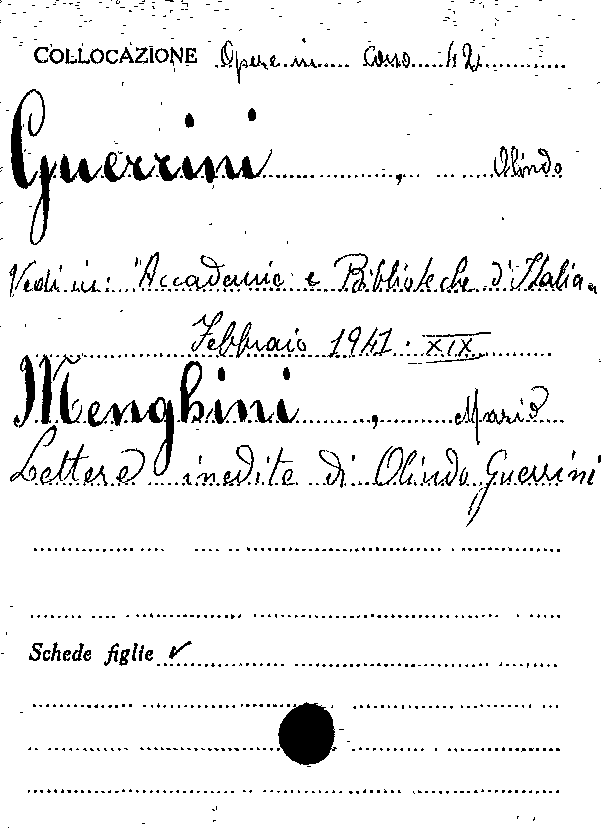 COLLOCAZIONE Opere in Corso 42
Guerrini, Olindo
Vedi in: "Accademie e Biblioteche d'Italia"
Febbraio 1941 · XIX
Menghini, Mario
Lettere inedite di Olindo Guerrini
Schede figlie ✓